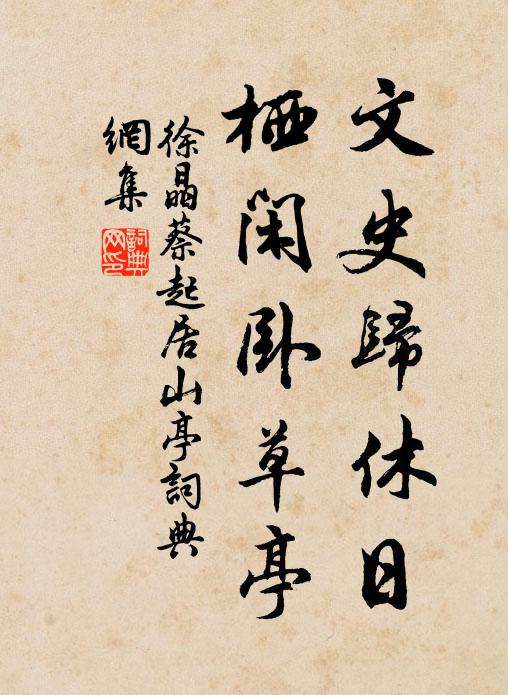 文史歸休日
栖閑臥草亭
徐晶蔡起居山亭詞典
網集
詞典網印